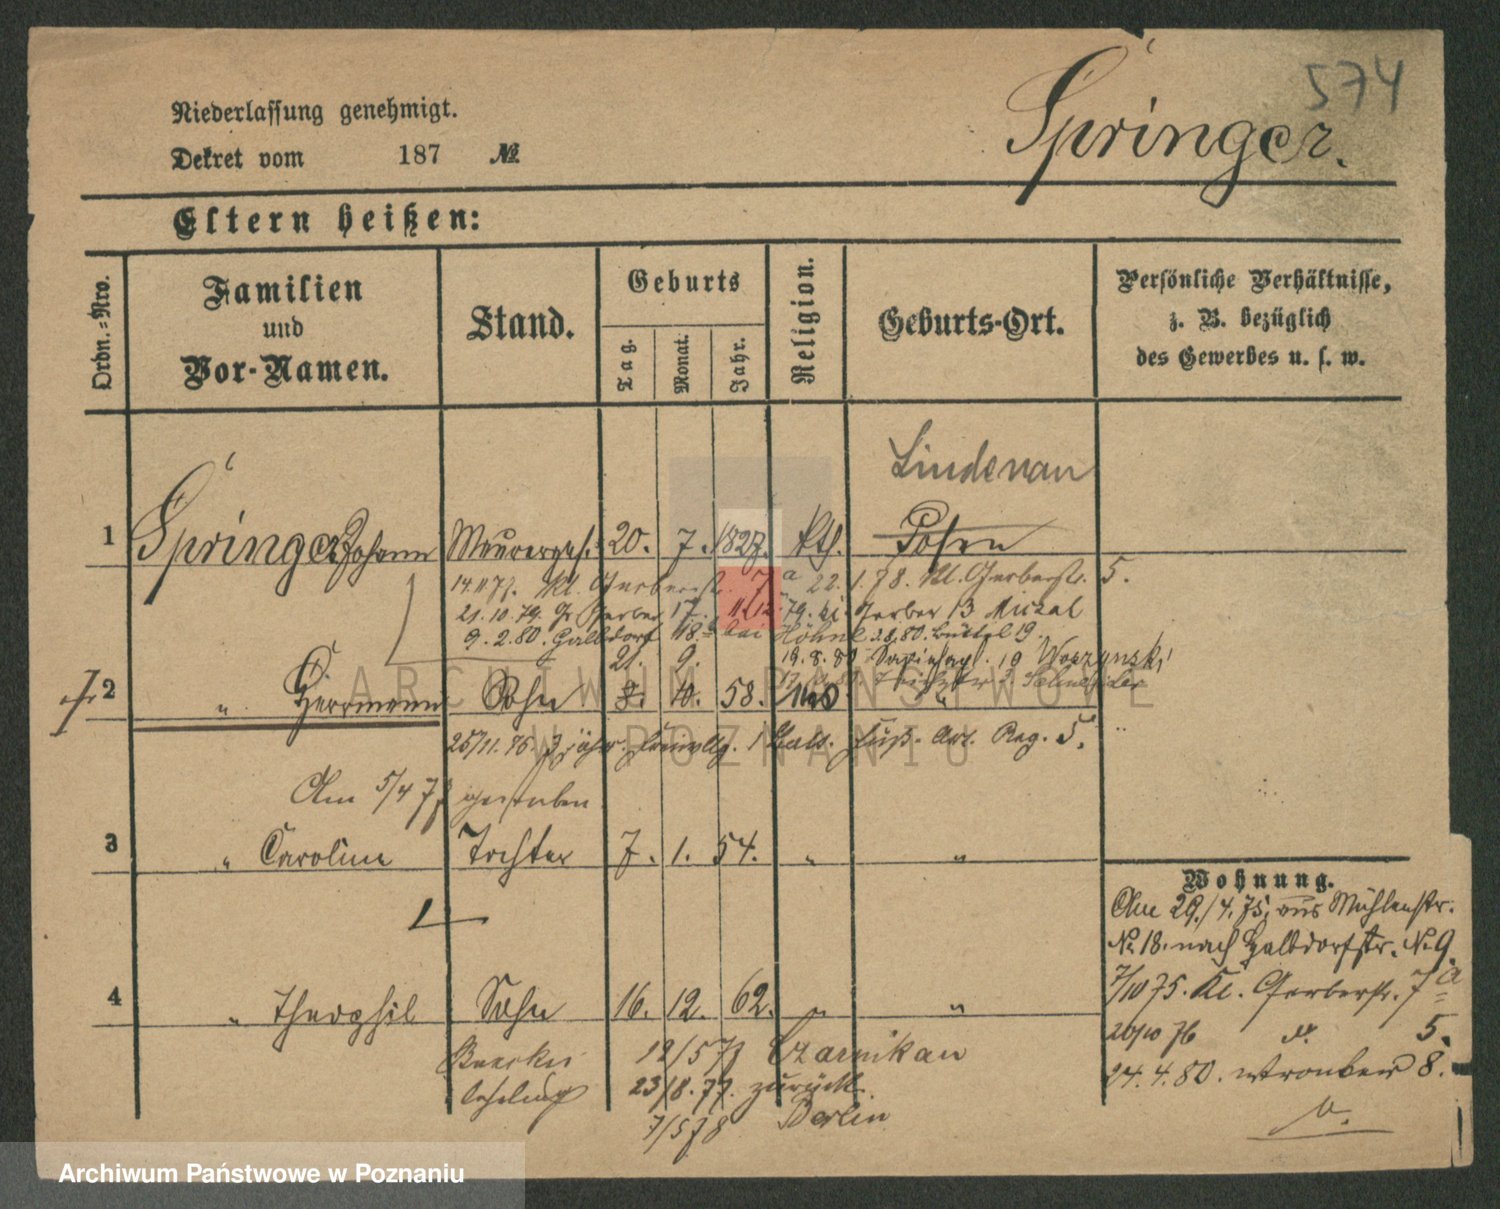 574
Springer.
Niederlassung genehmigt.
Dekret vom 187 №
Eltern heißen:
Ordn.=Nro.
Familien
und
Vor-Namen.
Stand.
Geburts
Tag.
Monat.
Jahr.
Religion.
Geburts-Ort.
Persönliche Verhältnisse,
z. B. bezüglich
des Gewerbes u. s. w.
Lindenau
1 Springer Johann Maurerges. 20. 7. 1827. kth. Posen
14.11.77. Kl. Gerberstr. 7a 22.1.78. Kl. Gerberstr. 5.
21.10.79. Gr Gerber 17. 11.12.79. kl. Gerber 13 Michal
9.2.80. Halbdorf 18. bei Höhne
21. 9.
2 " Herrmann Sohn 8. 10. 58. "
25/11. 76. 3 jähr. Freiwllg. 1 Bat. Fuß-Art. Reg. 5.
Am 5/4 77 gestorben
3 " Caroline Tochter 7. 1. 54. " "
4 " Theophil Sohn 16. 12. 62. " "
12/5 77 Czarnikau
23/8.77. zurück.
7/5 78 Berlin
Wohnung.
Am 29./4.75. aus Mühlenstr.
№ 18. nach Halbdorfstr. № 9.
7/10 75. Kl. Gerberstr. 7a
20/10 76 d. 5.
24.4.80. 8.
ARCHIWUM PAŃSTWOWE
W POZNANIU
Archiwum Państwowe w Poznaniu